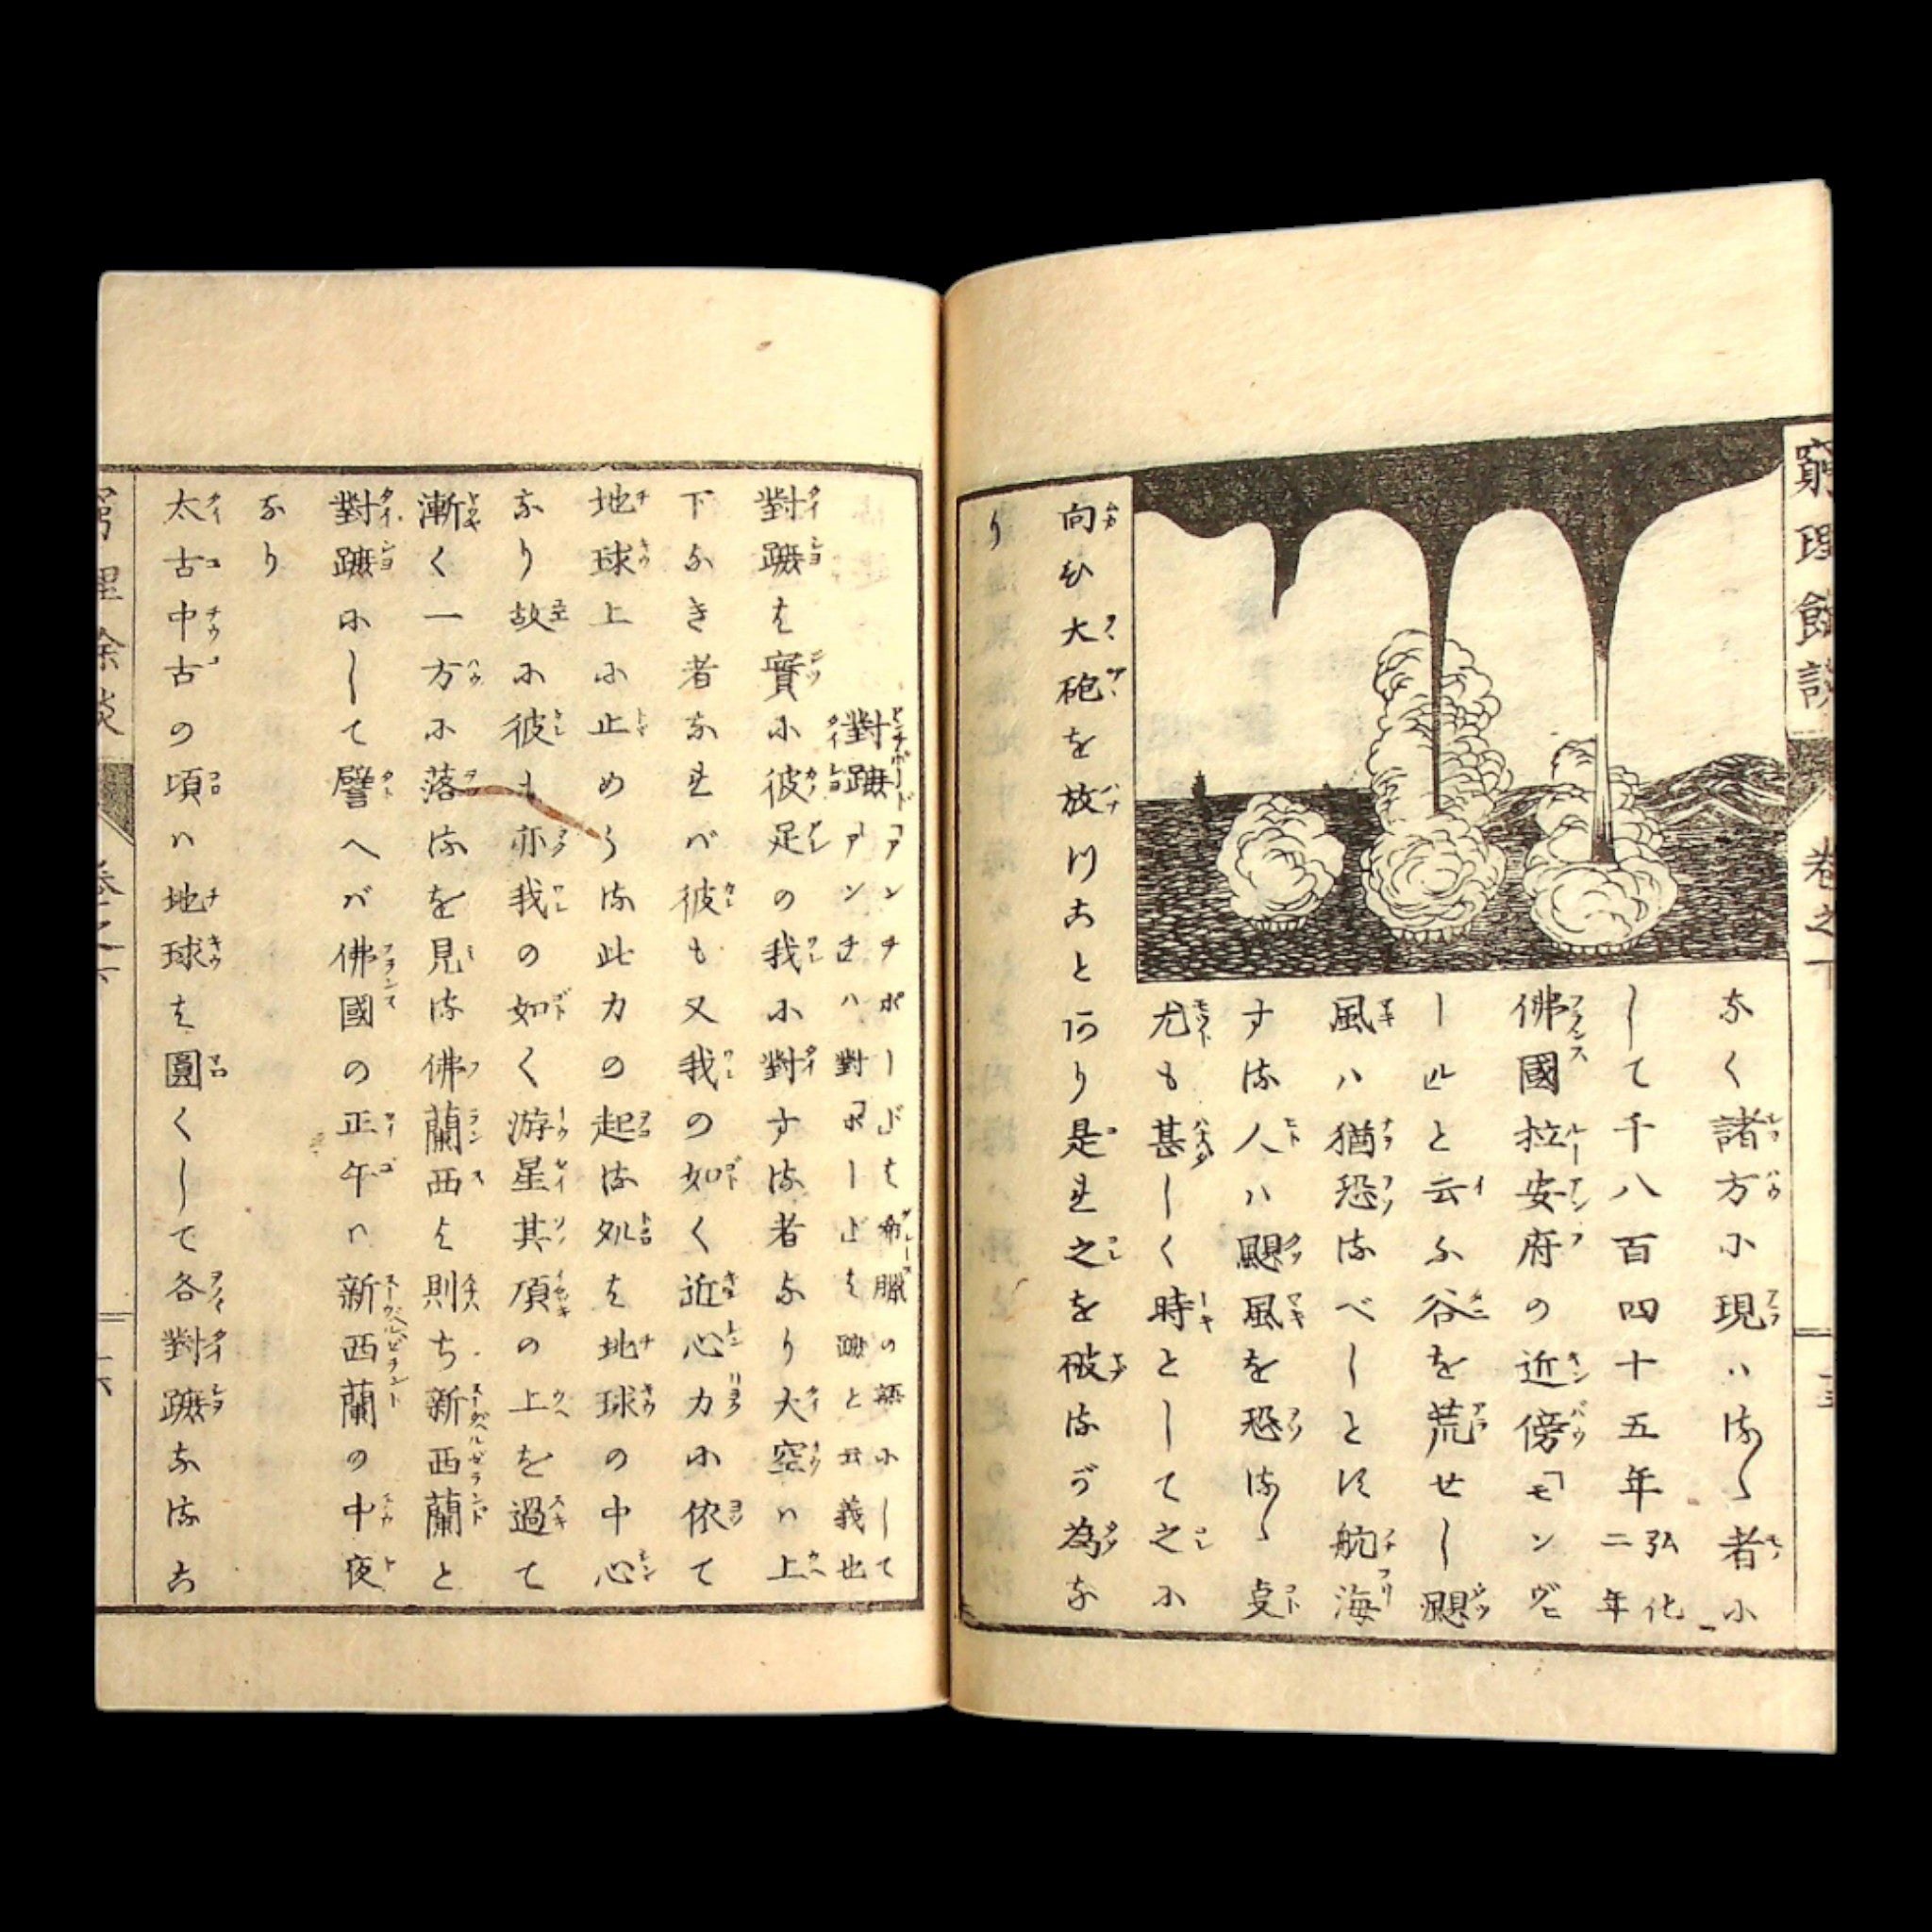 窮理餘談　卷之下
なく諸方に現ハるゝ者に
して千八百四十五年弘化二年
佛國拉安府の近傍「モンヴヒ
ール」と云ふ谷を荒せし颶
風ハ猶恐るべしとす航海
する人ハ颶風を恐るゝ事
尤も甚しく時として之に
向ひ大砲を放つことあり是れ之を破るが為な
り
對蹠「アンチポード」は希臘の語にして
「アンチ」ハ對「ポード」は蹠と云義也
對蹠は實に彼足の我に對する者なり大空ハ上
下なき者なれバ彼も又我の如く近心力に依て
地球上に止めらる此力の起る処は地球の中心
なり故に彼も亦我の如く游星其頂の上を過て
漸く一方に落るを見る佛蘭西は則ち新西蘭と
對蹠にして譬へバ佛國の正午ハ新西蘭の中夜
なり
太古中古の頃ハ地球は圓くして各對蹠なるこ